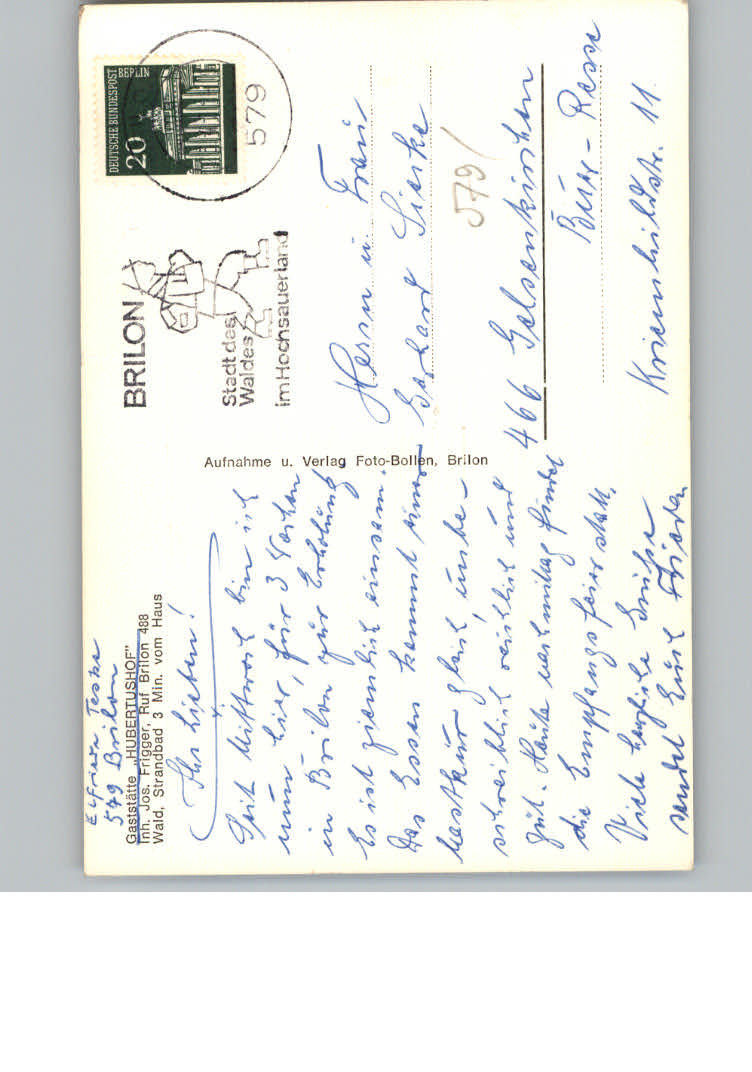 Elfriede Teske
579 Brilon
Gaststätte „HUBERTUSHOF"
Inh. Jos. Frigger, Ruf Brilon 488
Wald, Strandbad 3 Min. vom Haus
Ihr Lieben!
Seit Mittwoch bin ich
nun hier, für 3 Wochen
in Brilon zur Erholung
Es ist ziemlich einsam.
Das Essen kommt einer
Mastkur gleich, unbe-
schreiblich reichlich und
gut. Heute nachmittag findet
die Empfangsfeier statt.
Viele herzliche Grüße
sendet Euch
Aufnahme u. Verlag Foto-Bollen, Brilon
BRILON
Stadt des
Waldes
im Hochsauerland
579
DEUTSCHE BUNDESPOST BERLIN
20
Herrn u. Frau
Gerhard
579/
466 Gelsenkirchen
Buer-Resse
Kriemhildstr. 11.